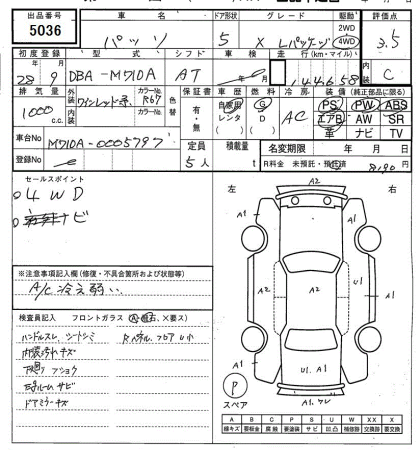 出品番号 車名 ドア形状 グレード 駆動 評価点
5036 パッソ 5 X Lパッケージ 2WD 4WD 3.5
初度登録 型式 シフト 車検 走行(km・マイル) 内装
28年9月 DBA-M710A AT 144658 C
排気量 外装 ワインレッド系 カラーNo. R67 色替 保証書 車歴 燃料 冷房 装備(純正部品に限る)
1000 c.c. 内装 カラーNo. 有・無 自家用 レンタ G D AC PS PW ABS
エアB AW SR
革 ナビ TV
車台No M710A-0005797 定員 積載量 名変期限 年 月 日
登録No 5人 t R料金 未預託・預託済 8190円
セールスポイント
○4WD
ナビ
左 右
A2
A1 A1
A2 A2 U1 A1
A1 U1 A1 A1
P
スペア
※注意事項記入欄(修復・不具合箇所および状態等)
A/C冷え弱い
検査員記入 フロントガラス
ハンドルスレ シートシミ
内張汚れキズ
下廻り
サビ
ドアミラーキズ
A B C P S U W X XX X
線キズ 要板金 腐蝕 要塗装 サビ 凹凸 補修跡 交換跡 要交換